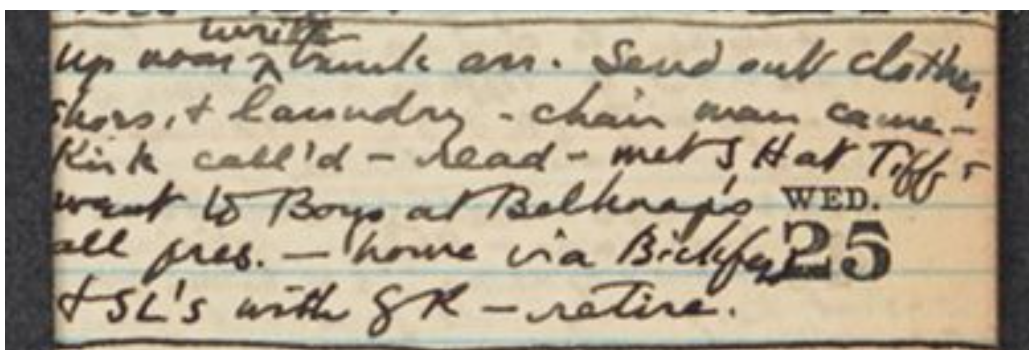 write
up noon ^ trunk arr. Send out clothes,
shoes, & laundry - chair man came -
Kirk call'd - read - met SH at Tiff's
went to Boys at Belknap's WED.
all pres. - home via Bickfords 25
& SL's with GK - retire.